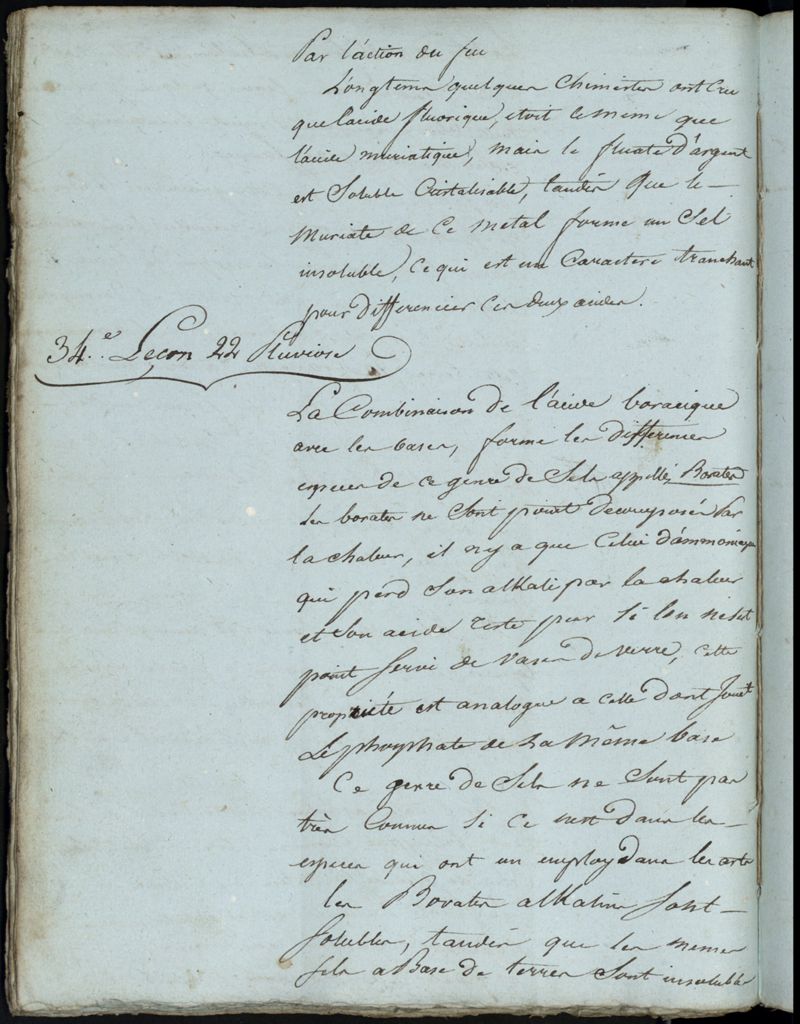 Par l'action du feu
Longtems quelques Chimistes ont Cru
que lacide fluorique, etoit le meme que
l'acide muriatique, mais le fluate D'argent
est Soluble Cristalisable, tandis Que le
Muriate de Ce metal forme un Sel
insoluble, Ce qui est un Caractere tranchant
pour Differencier Ces deux acides.
34.e Lecon 22 Pluviose
La Combinaison de l'acide boracique
avec les bases, forme les Differentes
especes de ce genre de Sels appellés Borates
Les borates ne Sont point Decomposés Par
la chaleur, il ny a que Celui D'ammoniaque
qui perd Son alkali par la chaleur
et Son acide reste pur Si lon nesest
point Servi de vases De verre, cette
propriété est analogue a celle Dont Jouit
Le phosphate de la Même base
Ce genre de Sels ne Sont pas
très Connus Si Ce nest Dans les
especes qui ont un employ Dans les arts
les Borates alkalins Sont
Solubles, tandis que les memes
Sels a Base De terres Sont insolubles